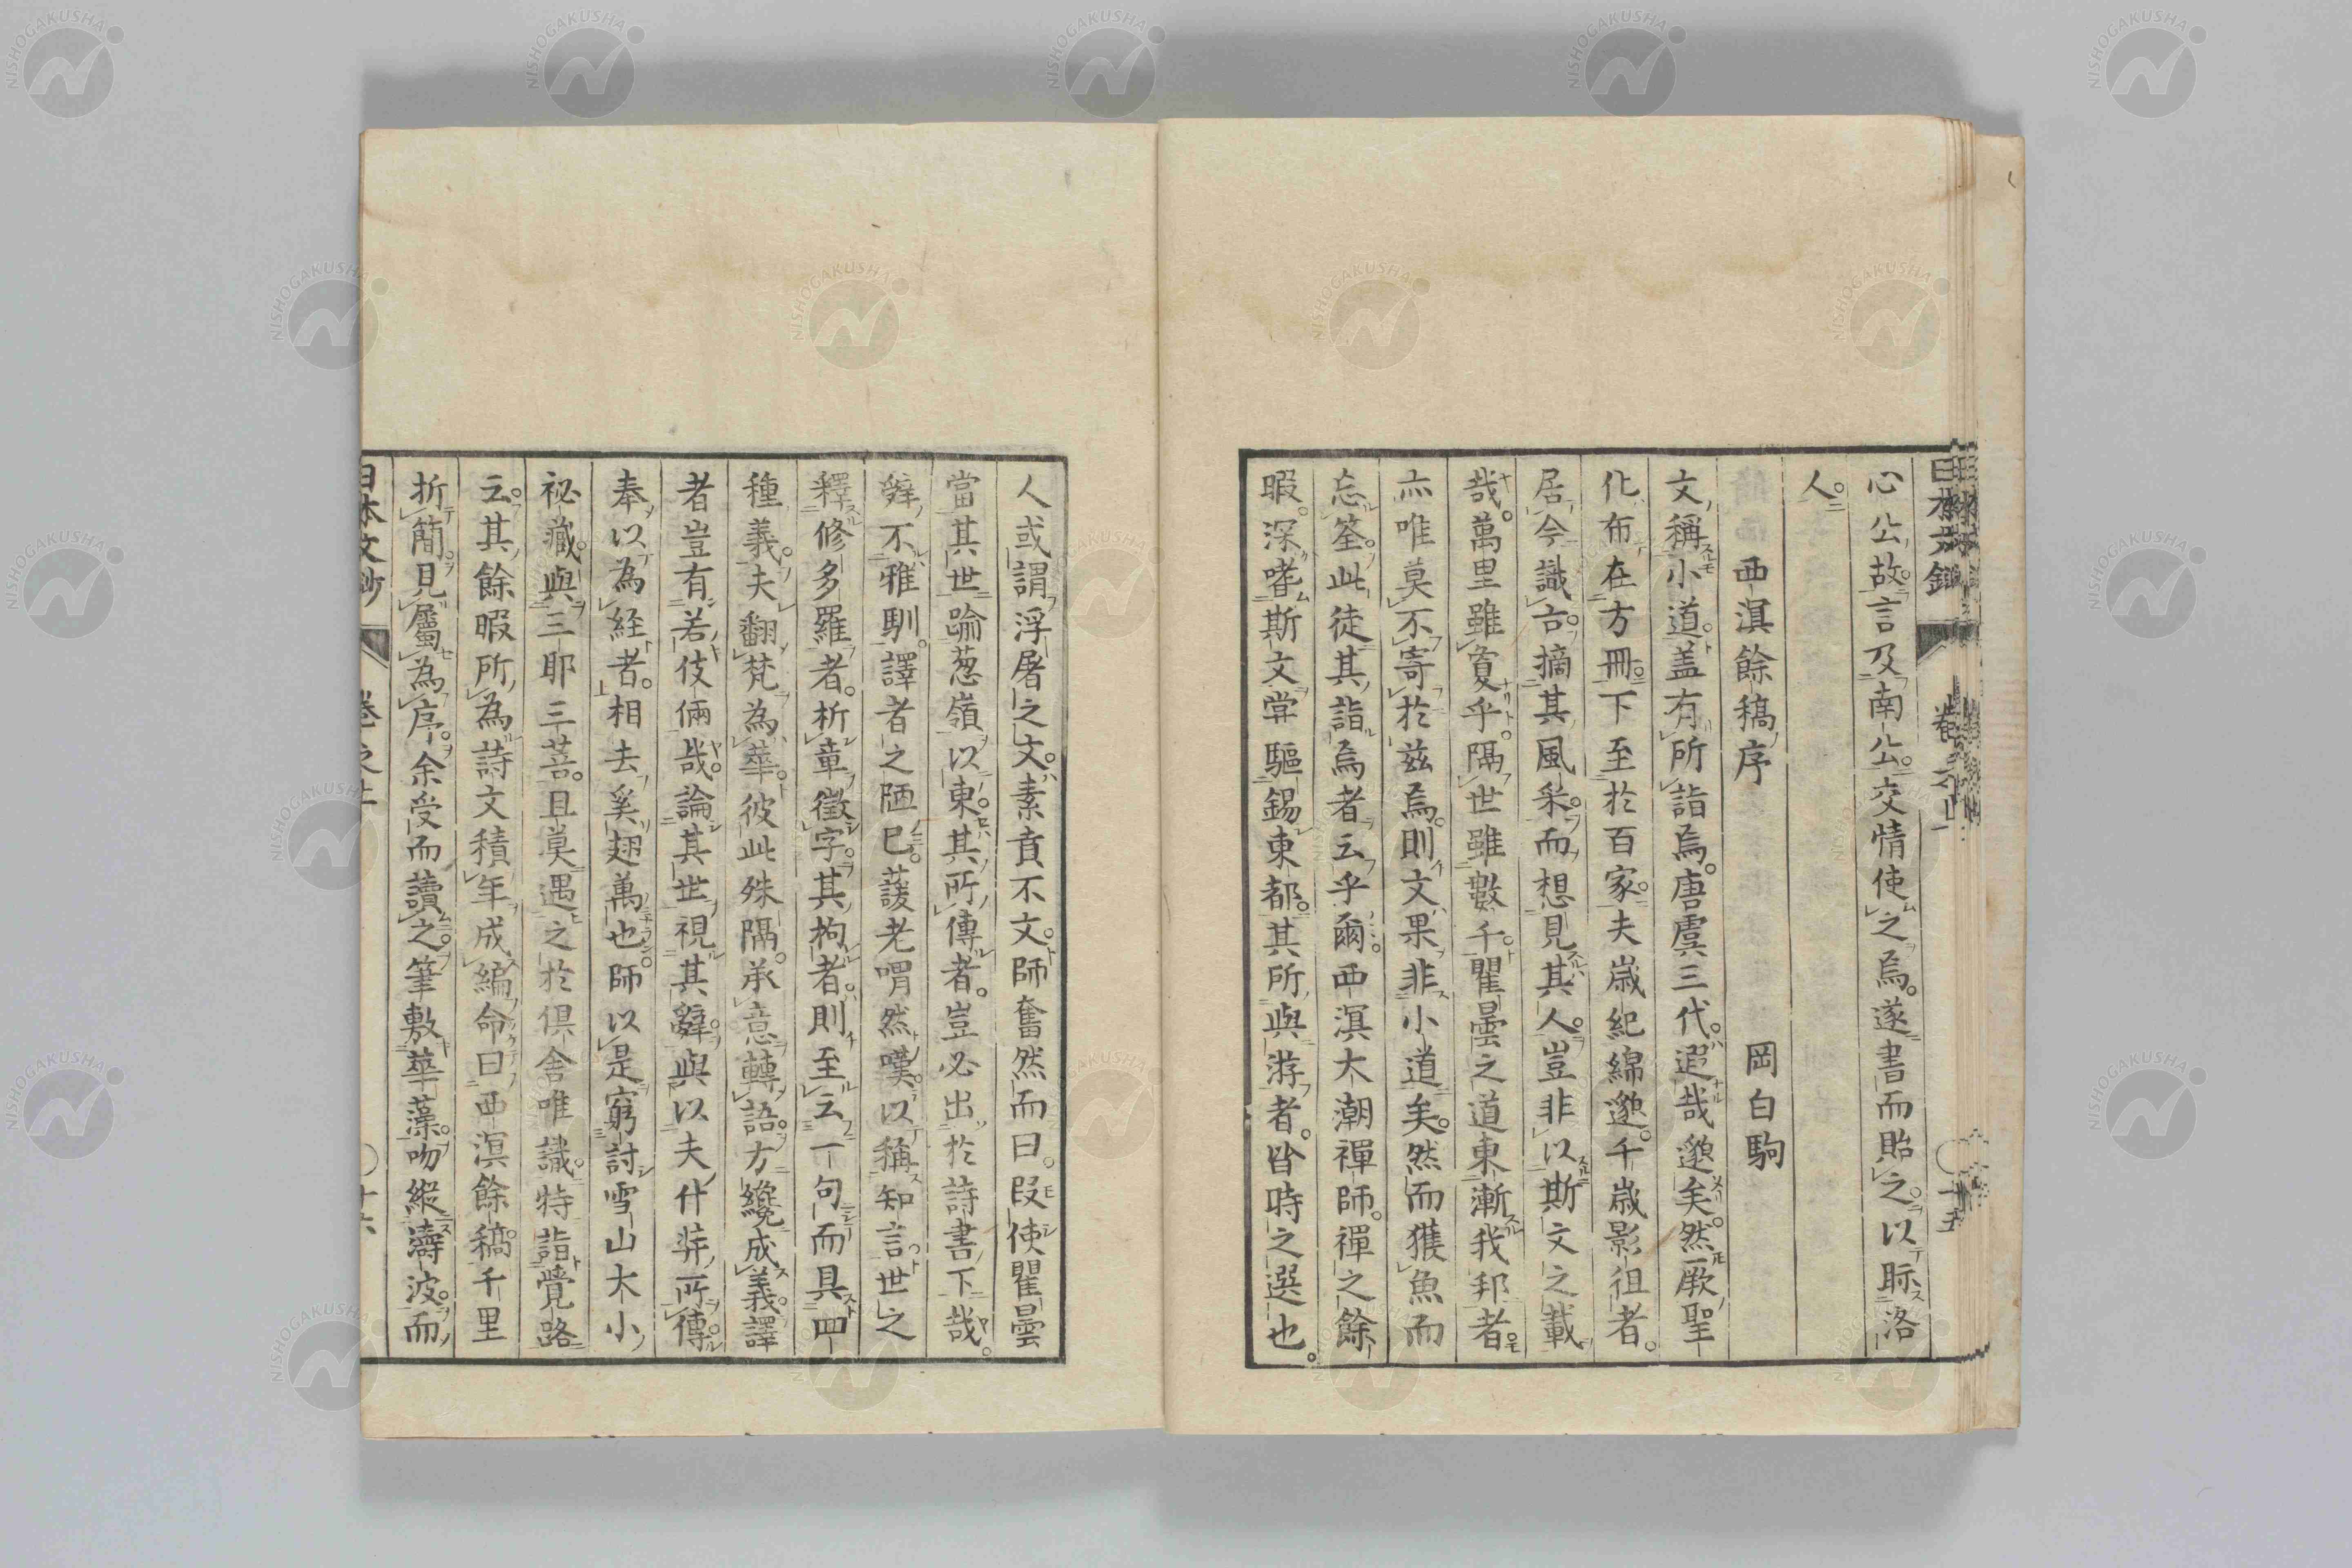 心公故言及南公交情使之焉遂書而貽之以眎洛
人
西溟餘稿序　岡白駒
文稱小道蓋有所詣焉唐虞三代遐哉邈矣然厥聖
化布在方冊下至於百家夫歳紀綿邈千歳影徂者
居今識古摘其風采而想見其人豈非以斯文之載
哉萬里雖敻乎隔世雖數千瞿曇之道東漸我邦者
亦唯莫不寄於茲焉則文果非小道矣然而獲魚而
忘筌此徒其詣焉者云乎爾西溟大潮禪師禪之餘
暇深嗜斯文嘗驅錫東都其所與游者皆時之選也
人或謂浮屠之文素責不文師奮然而曰叚使瞿曇
當其世踰葱嶺以東其所傳者豈必出於詩書下哉
辭不雅馴譯者之陋已蘐老喟然嘆以稱知言世之
釋修多羅者析章徵字其拘者則至云一句而具四
種義夫翻梵為華彼此殊隔承意轉語方纔成義譯
者豈有若伎倆哉論其世視其辭與以夫什奘所傳
奉以為経者相去奚翅萬也師以是窮討雪山大小
祕藏與三耶三菩且莫遇之於倶舎唯識特詣覺路
云其餘暇所為詩文積年成編命曰西溟餘稿千里
折簡見屬為序余受而讀之筆敷華藻吻縱濤波而
日本文鈔　卷之上　十六